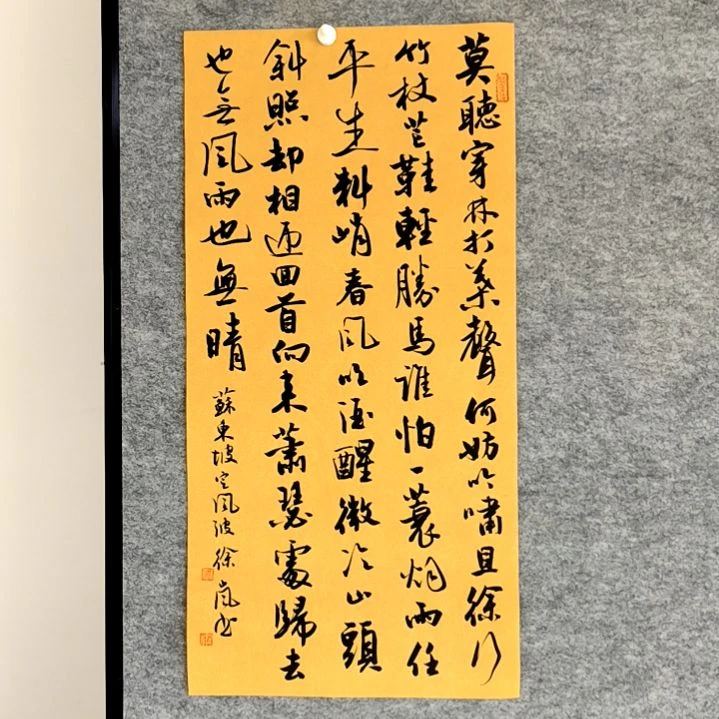 莫聽穿林打葉聲何妨吟嘯且徐行
竹杖芒鞋輕勝馬誰怕一蓑烟雨任
平生料峭春風吹酒醒微冷山頭
斜照却相迎回首向來蕭瑟處歸去
也无風雨也無晴
蘇東坡定風波徐嵐书